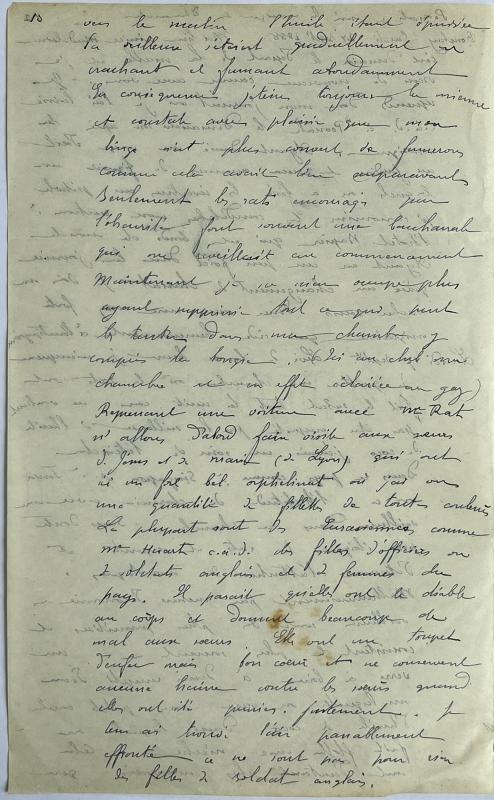 10
vers le matin l'huile étant épuisée
la veilleuse s'éteint graduellement en
crachant et fumant abondamment
En conséquence j'éteins toujours la mienne
et constate avec plaisir que mon
linge n'est plus couvert de fumerons
comme cela avait lieu auparavant
Seulement les rats encouragés par
l'obscurité font souvent une bacchanale
qui me réveillait au commencement
Maintenant je m'en occupe plus
ayant supprimé tout ce qui peut
les tenter dans ma chambre y
compris la bougie. (Ici au club ma
chambre est en effet éclairée au gaz)
Reprenant une voiture avec Mr Rat
n. allons d'abord faire visite aux sœurs
d. Jésus et d. Marie (de Lyon) qui ont
ici un fort bel orphelinat où j'ai vu
une quantité de fillettes de toutes couleurs
La plupart sont des Eurasiennes comme
Me c.a.d. des filles d'officiers ou
d. soldats anglais et d. femmes du
pays. Il parait qu'elles ont le diable
au corps et donnent beaucoup de
mal aux sœurs. Elles ont un toupet
d'enfer mais bon cœur et ne conservent
aucune haine contre les sœurs quand
elles ont été punies justement. Je
leur ai trouvé l'air passablement
effronté ce ne sont pas pour rien
des filles d. soldat anglais.